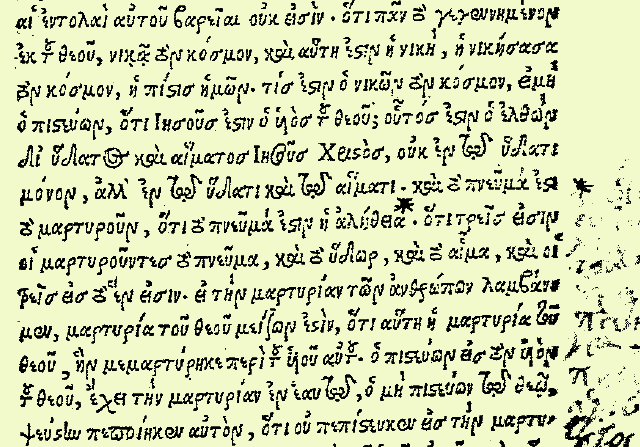 αἱ ἐντολαὶ αὐτοῦ βαρεῖαι οὐκ εἰσίν· ὅτι πᾶν τὸ γεγεννημένον
ἐκ τοῦ θεοῦ, νικᾷ τὸν κόσμον, καὶ αὕτη ἐστὶν ἡ νίκη, ἡ νικήσασα
τὸν κόσμον, ἡ πίστις ἡμῶν· τίς ἐστιν ὁ νικῶν τὸν κόσμον, εἰ μὴ
ὁ πιστεύων, ὅτι Ἰησοῦς ἐστιν ὁ υἱὸς τοῦ θεοῦ; οὗτός ἐστιν ὁ ἐλθὼν
δι' ὕδατος καὶ αἵματος Ἰησοῦς Χριστὸς, οὐκ ἐν τῷ ὕδατι
μόνον, ἀλλ' ἐν τῷ ὕδατι καὶ τῷ αἵματι· καὶ τὸ πνεῦμά ἐστι
τὸ μαρτυροῦν, ὅτι τὸ πνεῦμά ἐστιν ἡ ἀλήθεια*· ὅτι τρεῖς εἰσιν *
οἱ μαρτυροῦντες τὸ πνεῦμα, καὶ τὸ ὕδωρ, καὶ τὸ αἷμα, καὶ οἱ
τρεῖς εἰς τὸ ἕν εἰσιν. εἰ τὴν μαρτυρίαν τῶν ἀνθρώπων λαμβάνο
μεν, μαρτυρία τοῦ θεοῦ μείζων ἐστὶν, ὅτι αὕτη ἡ μαρτυρία τοῦ
θεοῦ, ἣν μεμαρτύρηκε περὶ τοῦ υἱοῦ αὐτοῦ. ὁ πιστεύων εἰς τὸν υἱὸν
τοῦ θεοῦ, ἔχει τὴν μαρτυρίαν ἐν ἑαυτῷ, ὁ μὴ πιστεύων τῷ θεῷ,
ψεύστην πεποίηκεν αὐτὸν, ὅτι οὐ πεπίστευκεν εἰς τὴν μαρτυ